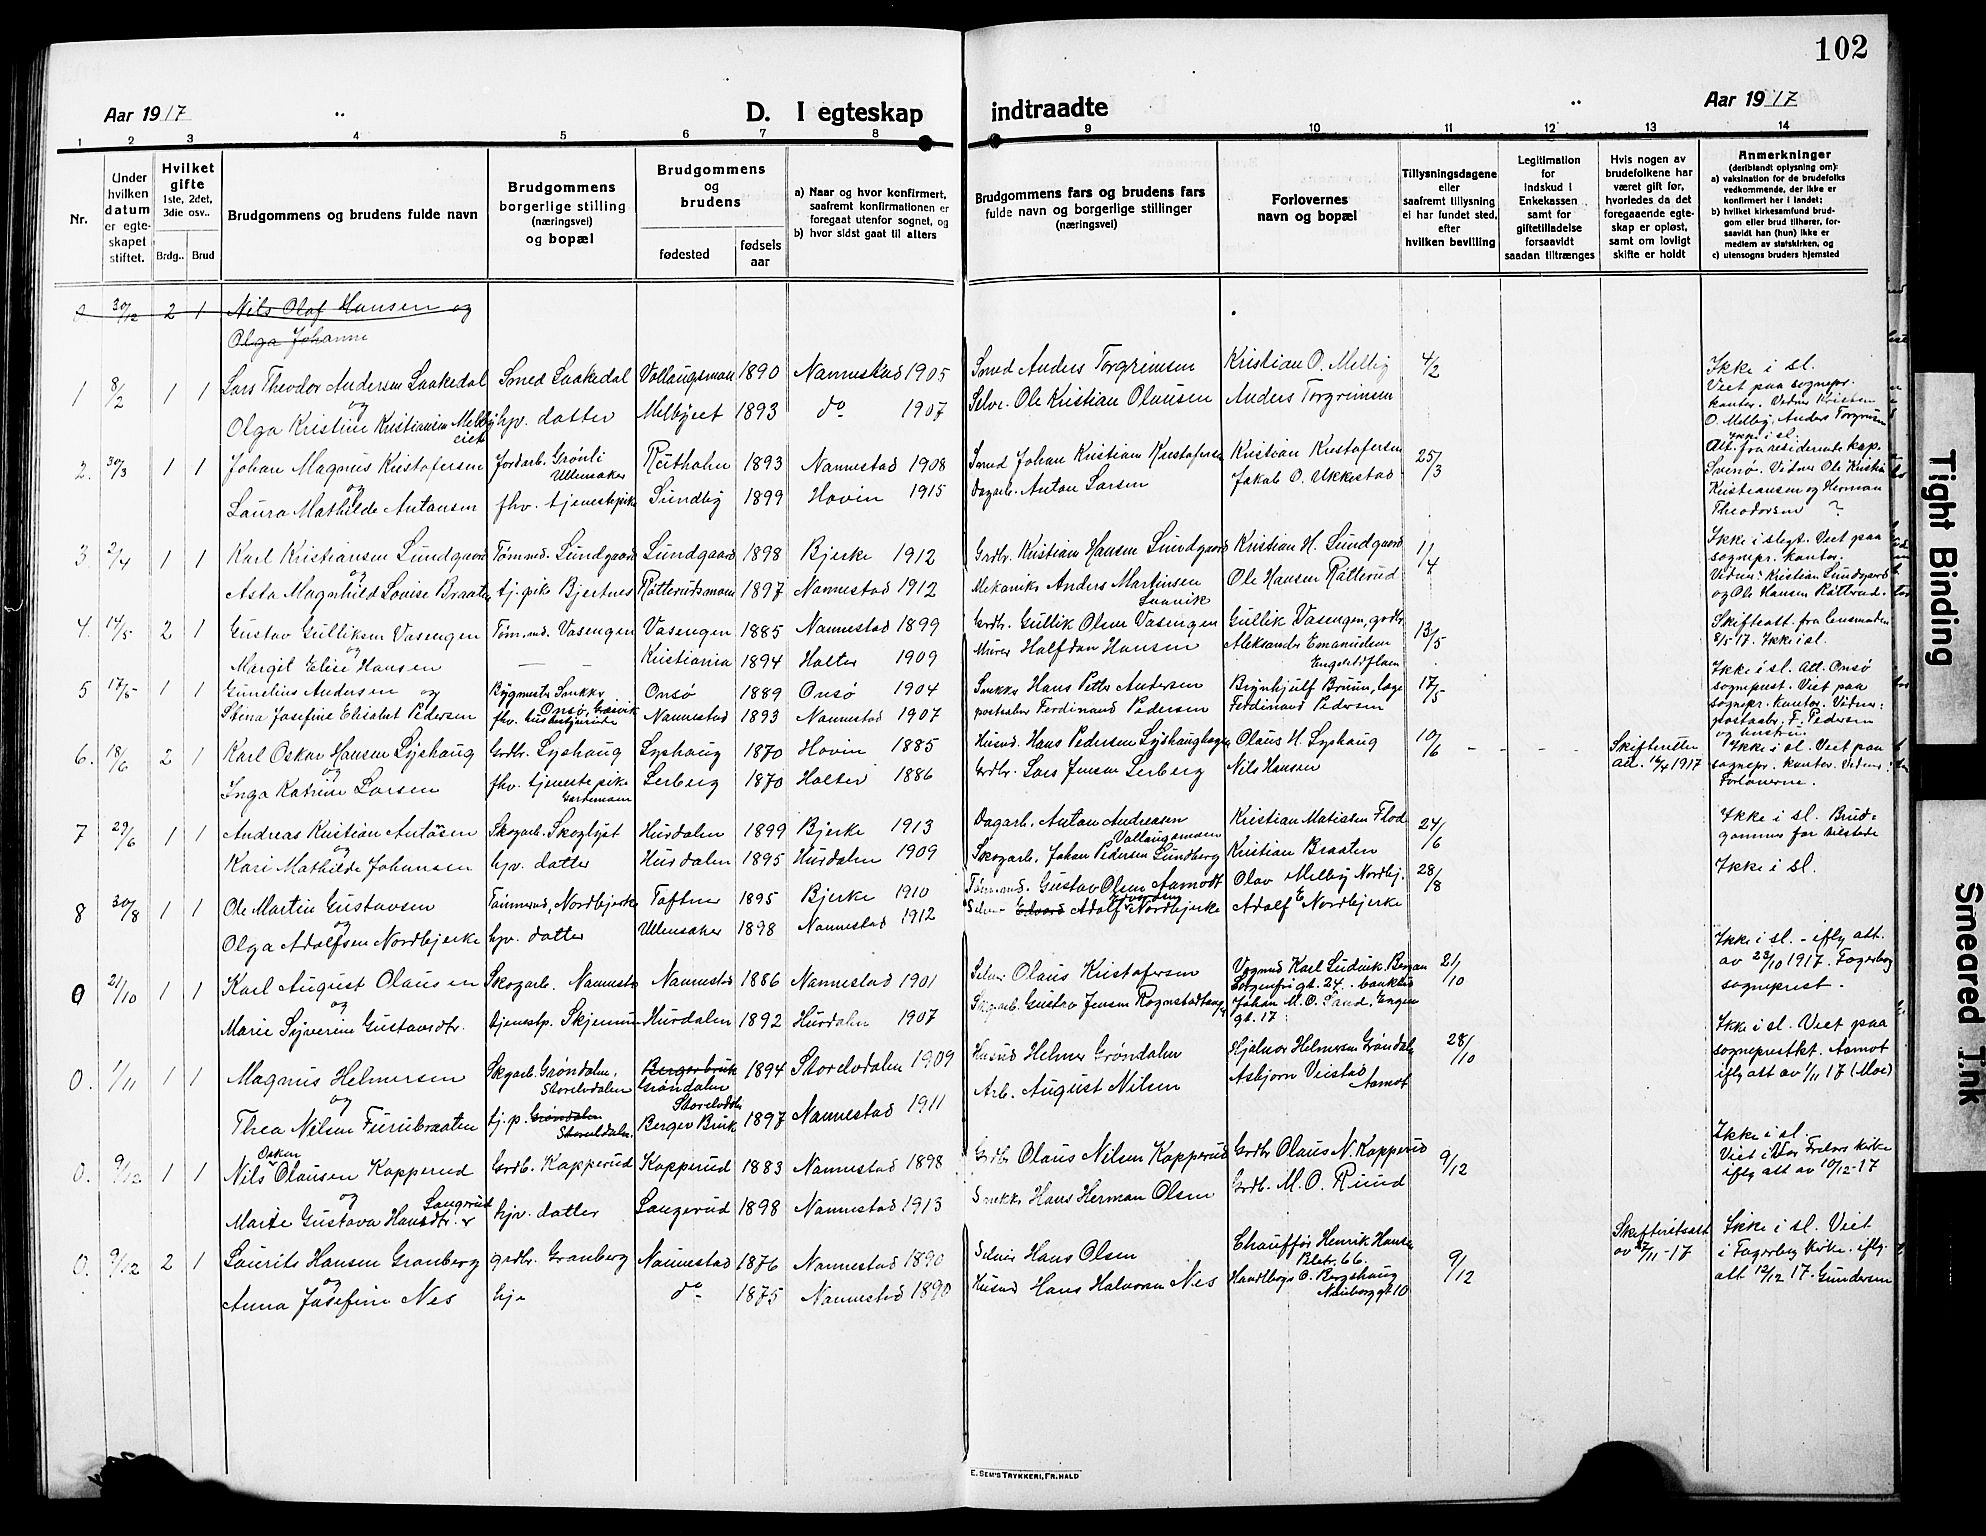 102
Aar 1917
D. I egteskap indtraadte
Aar 1917
1 2 3 4 5 6 7 8 9 10 11 12 13 14
Nr.
Under hvilken datum er egte-skapet stiftet.
Hvilket gifte 1ste, 2det, 3die osv..
Brdg.. Brud
Brudgommens og brudens fulde navn
Brudgommens borgerlige stilling (næringsvei) og bopæl
Brudgommens og brudens
fødested
fødsels aar
a) Naar og hvor konfirmert, saafremt konfirmationen er foregaat utenfor sognet, og
b) hvor sidst gaat til alters
Brudgommens fars og brudens fars fulde navn og borgerlige stillinger (næringsvei)
Forlovernes navn og bopæl
Tillysningsdagene eller saafremt tillysning ei har fundet sted, efter hvilken bevilling
Legitimation for indskud i Enkekassen samt for giftetilladelse forsaavidt saadan tiltrænges
Hvis nogen av brudefolkene har været gift før, hvorledes da det foregaaende egte-skap er opløst, samt om lovligt skifte er holdt
Anmerkninger (deriblandt oplysning om):
a) vaksination for de brudefolks vedkommende, der ikke er konfirmert her i landet;
b) hvilket kirkesamfund brud-gom eller brud tilhører, for-saavidt han (hun) ikke er medlem av statskirken, og
c) utensogns bruders hjemsted
0. 30/12 2 1 Nils Olaf Hansen og
Olga Johanne
1 8/2 1 1 Lars Theodor Andersen Laakedal Smed Laakedal Vollaugsmoen 1890 Nannestad 1905 Smed Anders Torgrimsen Kristian O. Melby 4/2 Ikke i sl.
og Viet paa sognepr. kontor. Vidner Kristian
Olga Kristine Kristiansen Melby eiet hjv. datter Melbyeiet 1893 do 1907 Selve. Ole Kristian Olausen Anders Torgrimsen O. Melby, Anders Torgrimsen
2. 30/3 1 1 Johan Magnus Kristofersen Jordarb. Grønli Ullensaker Rotholm 1893 Nannestad 1908 Smed Johan Kristian Kristofersen Kristian Kristofersen 25/3 Ikke i sl. Att. fra residerende kap.
og Svenø. Vidner Ole Kristian
Laura Mathilde Antonsen fhv. tjenestepike Sundby 1899 Hovin 1915 Dagarb. Anton Larsen Jakob O. Ukkestad Kristiansen og Herman Theodorsen ?
3. 2/4 1 1 Karl Kristiansen Lundgaard Tømmd. Lundgaard Lundgaard 1898 Bjerke 1912 Grdbr. Kristian Hansen Lundgaard Kristian H. Lundgaard 1/4 Ikke i slegt. Viet paa sognepr. kontor.
og Vidner: Kristian Lundgaard
Asta Magnhild Lovise Braaten tj. pike Bjertnes Rotterudsmoen 1897 Nannestad 1912 Mekaniks Anders Martinsen Ole Hansen Rotterud og Ole Hansen Rotterud.
4. 14/5 2 1 Gustav Gulliksen Vasengen Tøm.md. Vasengen Vasengen 1885 Nannestad 1899 Grdbr. Gullik Olsen Vasengen Gullik Vasengen, grdbr. 13/5 Skifteatt. fra Lensmanden
og 8/5 17. Ikke i sl.
Margit Elise Hansen — — Kristiania 1894 Holter 1909 Murer Halfdan Hansen Aleksander Emanuelsen
5 17/5 1 1 Gunelius Andersen og Bygmester Snekker Onsø 1889 Onsø 1904 Snekker Hans Petter Andersen Brynhjulf Bruun, læge 17/5 Ikke i sl. Att. Onsø sogneprest. Viet paa
Stina Josefine Elisabet Pedersen Nannestad 1893 Nannestad 1907 postaabn. Ferdinand Pedersen Ferdinand Pedersen sognepr. kontor. Vidner: postaabr. F. Pedersen og hustru.
6. 18/6 2 1 Karl Oskar Hansen Lyshaug Grdbr. Lyshaug Lyshaug 1870 Hovin 1885 Husmd. Hans Pedersen Lyshaughagen Olaus H. Lyshaug 10/6 - - - Skifteretten att. 16/4 1917 Ikke i sl. Viet paa
og sognepr. kontor. Vidner:
Inga Katrine Larsen fhv. tjenestepike Serberg 1870 Holter 1886 Grdbr. Lars Jensen Serberg Nils Hansen Forloverne.
7 29/6 1 1 Andreas Kristian Antonsen Skogarb. Skoglyst Hurdalen 1899 Bjerke 1913 Dagarb. Anton Andreasen Vollaugsmoen Kristian Matiasen Flod 24/6 Ikke i sl. Brud-
og gommens far tilstede
Kari Mathilde Johansen hjv. datter Hurdalen 1895 Hurdalen 1909 Skogarb. Johan Pedersen Lundberg Kristian Braaten
8 30/8 1 1 Ole Martin Gustavsen Tømmermd., Nordbjerke Toftner 1895 Bjerke 1910 Tømmermd. Gustav Olsen Aamodt Olav Melby Nordbj. 28/8 Ikke i sl.
og
Olga Adolfsen Nordbjerke hjv. datter Ullensaker 1898 Nannestad 1912 Selve. Edvard Adolf Nordbjerke Adolf E Nordbjerke
0 21/10 1 1 Karl August Olausen Skogarb. Nannestad Nannestad 1886 Nannestad 1901 Selveier Olaus Kristofersen Vognmd Karl Ludvik Bergan Sorgenfrigt. 24. 21/10 Ikke i sl. - iflg att.
og av 23/10 1917. Fagerborg
Marie Syverine Gustavsdtr. tjenestp. Skjennum Hurdalen 1892 Hurdalen 1907 Skogarb. Gustav Jensen Rognstadhaug Johan M. O. Sand, Engen gt. 17 sogneprest.
0. 1/11 1 1 Magnus Helmersen Skgarb. Grøndalen, Storelvdalen Bergerbruk Grøndalen Storelvdalen 1894 Storelvdalen 1909 Husmd Helmer Grøndalen Hjalmar Helmersen Grøndalen 28/10 Ikke i sl. Viet paa
og sogneprestkt. Aamot
Thea Nilsen Furubraaten tj. p. Grøndalen Storelvdalen Berger Bruk 1897 Nannestad 1911 Arb. August Nilsen Asbjørn Veistad Aamot iflg att av 1/11 17 (Moe)
0. 9/12 1 1 Nils Oskar Olausen Kopperud Grdb. Kopperud Kopperud 1883 Nannestad 1898 Grdbr Olaus Nilsen Kopperud Grdbr Olaus N. Kopperud 9/12 Ikke i sl.
og Viet i Vor Frelsers Kirke
Marie Gustava Hansdtr. Langerud hjv. datter Langerud 1898 Nannestad 1913 Snekker Hans Herman Olsen Grdb. M. O. Ruud iflg att av 10/12-17
0. 9/12 2 1 Laurits Hansen Granberg grdbr. Granberg Nannestad 1876 Nannestad 1890 Selveier Hans Olsen Chauffør Henrik Hansen 9/12 Skifteretsatt av 27/11-17 Ikke i sl. Viet
og i Fagerborg Kirke. iflg.
Anna Josefine Nes hje do 1875 Nannestad 1890 Husmd Hans Halvorsen Nes Handlbgs O. Bergshaug att 12/12 17. Gundersen
E. SEM'S TRYKKERI, FR.HALD
Tight Binding
Smeared Ink